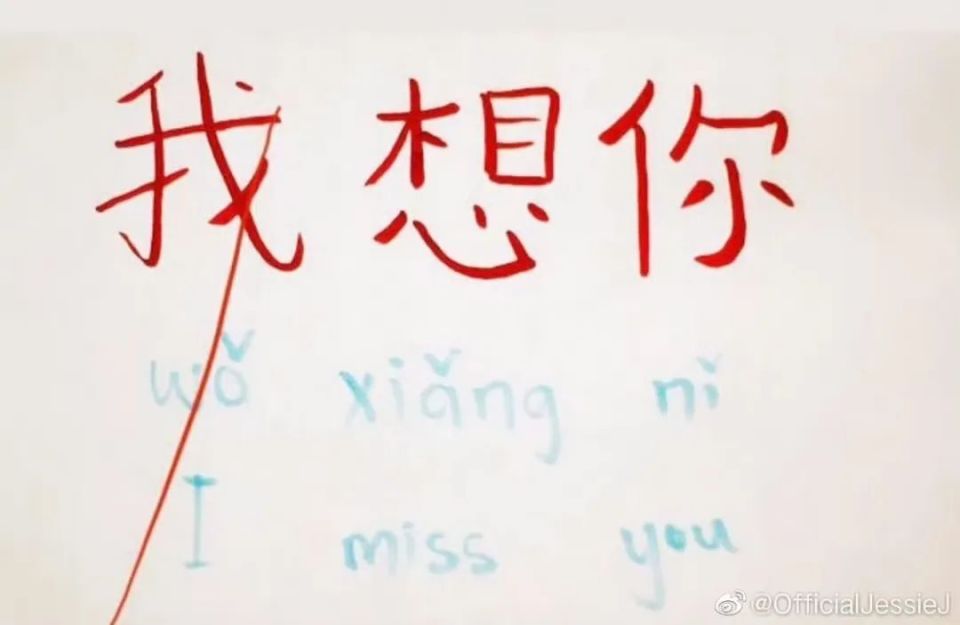 我想你
wǒ xiǎng nǐ
I miss you
@OfficialJessieJ